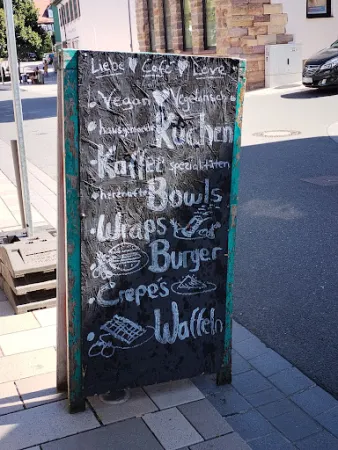 Liebe ♥ Café ♥ Love
• Vegan ♥ Vegetarisch
• hausgemachte Kuchen
• Kaffee spezialitäten
• herzhafte Bowls
• Wraps
• Burger
• Crepe's
• Waffeln